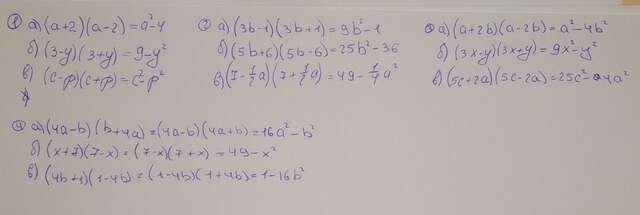 ① а) (a+2)(a-2)=a²-4
б) (3-y)(3+y)=9-y²
в) (c-p)(c+p)=c²-p²
② а) (3b-1)(3b+1)=9b²-1
б) (5b+6)(5b-6)=25b²-36
в) (7-1/2a)(7+1/2a)=49-1/4a²
③ а) (a+2b)(a-2b)=a²-4b²
б) (3x-y)(3x+y)=9x²-y²
в) (5c+2a)(5c-2a)=25c²-4a²
④ а) (4a-b)(b+4a)=(4a-b)(4a+b)=16a²-b²
б) (x+7)(7-x)=(7-x)(7+x)=49-x²
в) (4b+1)(1-4b)=(1-4b)(1+4b)=1-16b²